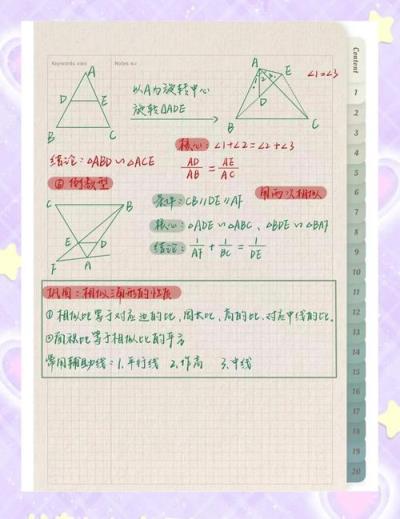 Keywords Notes
A
D E
B C
以A为旋转中心
旋转△ADE
A
1 2 3 E
D
B C
∠1=∠3
核心:∠1+∠2=∠2+∠3
AD/AB = AE/AC
结论:△ABD∽△ACE
倒数型
用两次相似
C B
E D
F A
条件:CB∥DE∥AF
核心:△ADE∽△ABC、△BDE∽△BAF
结论:1/AF + 1/BC = 1/DE
巩固:相似三角形的性质
① 相似比等于对应边的比,周长比、高的比、对应中线的比。
②面积比等于相似比的平方
常用辅助线:1.平行线 2.作高 3.中线
Content
1
2
3
4
5
6
7
8
9
10
11
12
13
14
15
16
17
18
19
20